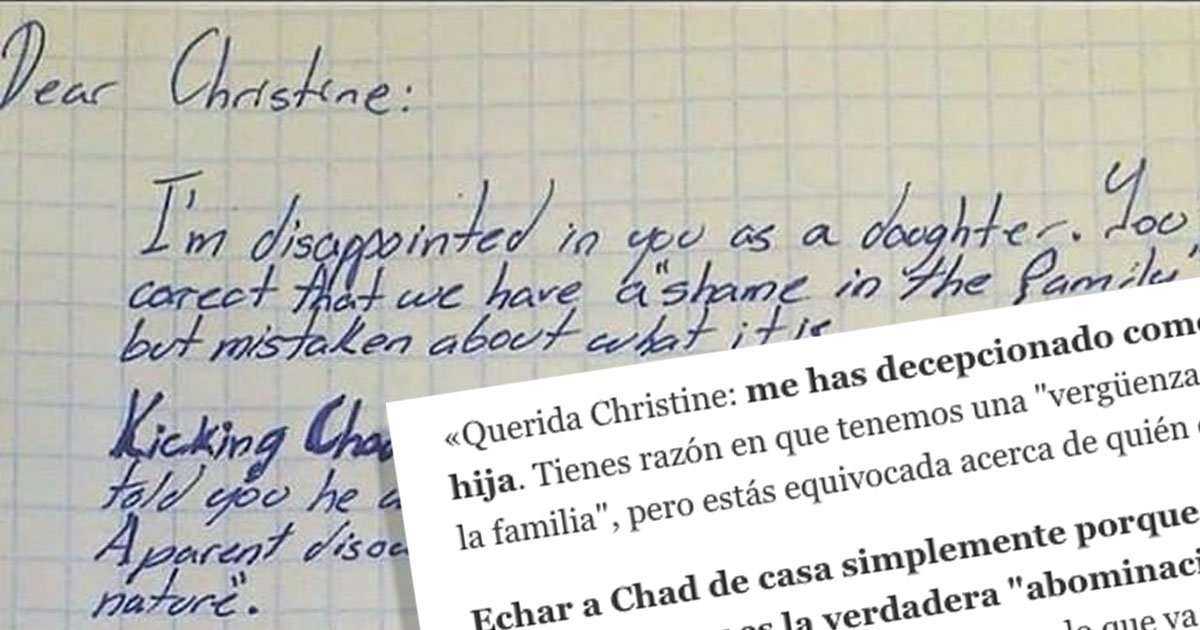 Dear Christine:
I'm disappointed in you as a daughter. You
corect that we have a "shame in the family"
but mistaken about what it is
Kicking Chad
told you he
Aparent
nature".
«Querida Christine: me has decepcionado como
hija. Tienes razón en que tenemos una "vergüenza
la familia", pero estás equivocada acerca de quién
Echar a Chad de casa simplemente porque
es la verdadera "abominaci
lo que va